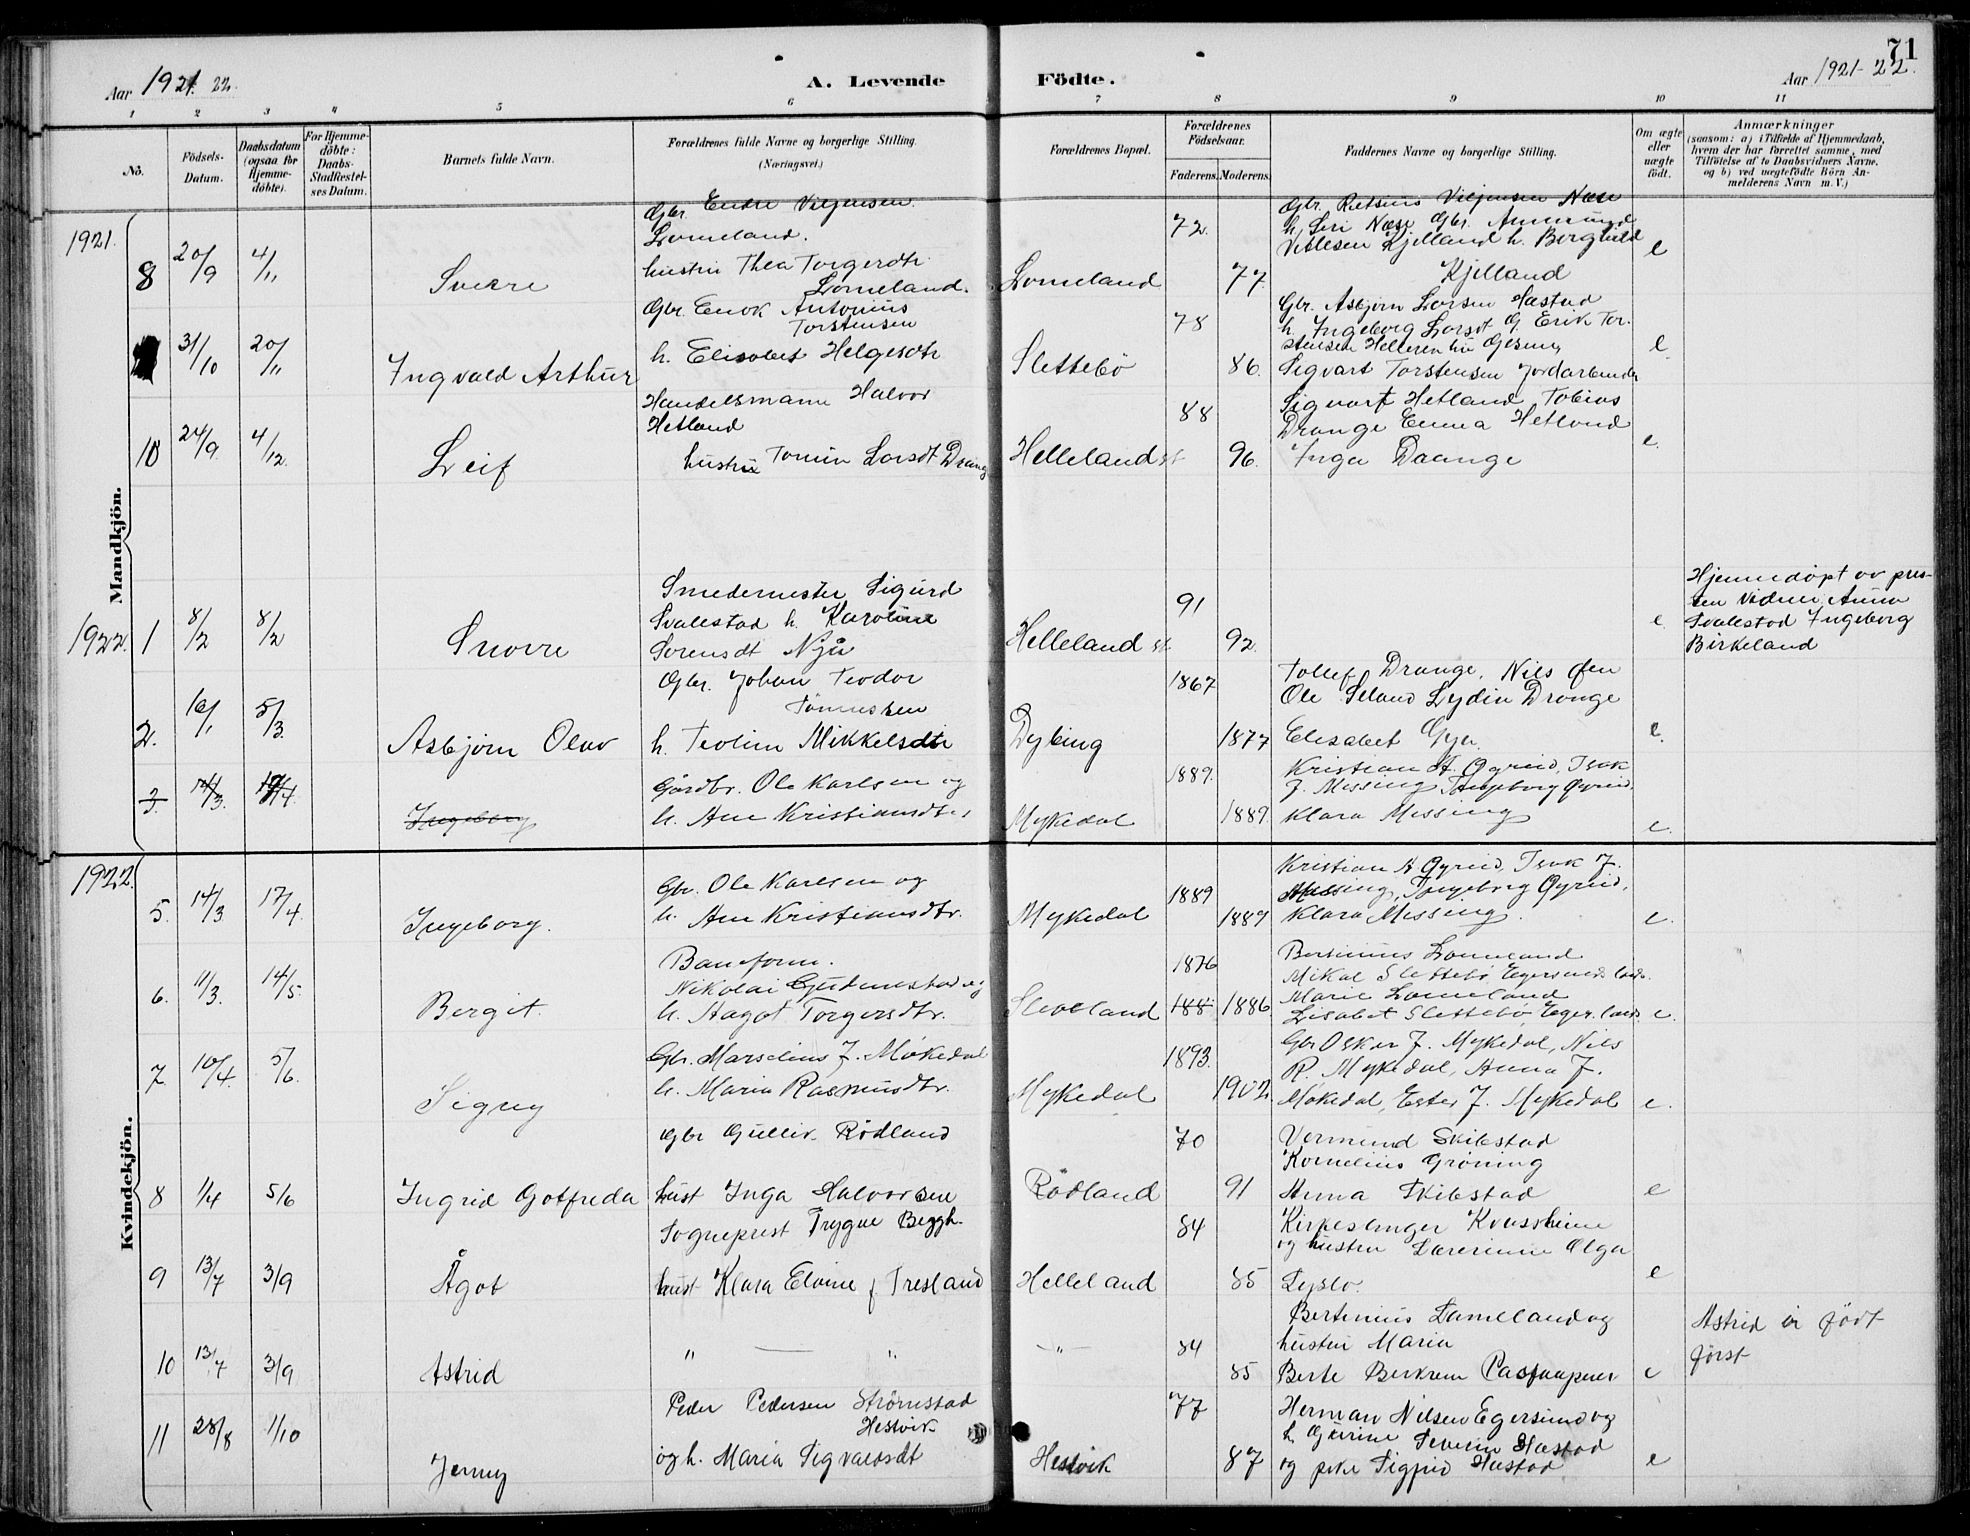 71
Aar 1921. 22.
A. Levende
Födte.
Aar 1921-22.
1 2 3 4 5 6 7 8 9 10 11
No.
Födsels-Datum.
Daabsdatum (ogsaa for Hjemme-döbte).
For Hjemme-döbte: Daabs-Stadfæstel-ses Datum.
Barnets fulde Navn.
Forældrenes fulde Navne og borgerlige Stilling.
(Næringsvei.)
Forældrenes Bopæl.
Forældrenes Födselsaar.
Faderens. Moderens.
Faddernes Navne og borgerlige Stilling.
Om ægte eller uægte födt.
Anmærkninger
(saasom: a) i Tilfælde af Hjemmedaab, hvem der har forrettet samme, med Tilföielse af to Daabsvidners Navne, og b) ved uægtefödte Börn An-melderens Navn m. V.)
Mandkjön.
1921.
8 20/9 4/11 Sverre
Gbr. Endre Viljensen
Lomeland.
hustru Thea Torgersdtr
Lomeland.
Lomeland 72. 77.
Gbr. Viljensen Næse
h. Siri Næse Gbr. Anmund
Vetlesen Kjelland h. Borghild
Kjelland
e
31/10 20/11 Ingvald Arthur
Gbr. Enok Antonius
Torstensen
h. Elisabet Helgesdtr
Slettebö 78 86.
Gbr. Asbjörn Larsen Hæstad
h. Ingeborg Larsdt G Erik Tor-
stensen Helleren
Sigvart Torstensen Jordarbeider
e.
10 24/9 4/12. Leif
Handelsmann Halvor
Hetland
hustru Tomin Larsdt Drang
Helleland st 88 96.
Sigvart Hetland Tobias
Drange Emma Hetland
Inga Daange
e.
1922. 1 8/2 8/2 Snorre
Smedemester Sigurd
Svalestad h. Karoline
Sorensdt Nyå
Helleland st. 91 92.
e.
Hjemmedöpt av pres-
ten Vidner Anna
Svalestad Ingeborg
Birkeland
2. 16/1 5/3. Asbjörn Olav
Gbr. Johan Teodor
Tönnessen
h. Teoline Mikkelsdtr
Dybing 1867 1877
Tollef Drange, Nils Øen
Ole Seland Lydia Drange
Elisabet Gya.
e.
3. 14/3. 17/4. Ingeborg
Gårdbr. Ole Karlsen og
h. Ane Kristiansdtr
Mykedal 1889. 1889.
Kristian A. Øgreid, Isak
J. Missing Ingeborg Øgreid.
Klara Missing
e.
Kvindekjön.
1922.
5. 14/3. 17/4. Ingeborg.
Gbr. Ole Karlsen og
h. Ane Kristiansdtr.
Mykedal 1889 1889
Kristian A Øgreid, Isak J.
Missing, Ingeborg Øgreid,
Klara Missing.
e.
6. 11/3. 14/5. Bergit.
Baneform.
Nikolai Gudmestad og
h. Aagot Torgersdtr.
Sleveland 1876 188 1886
Bertinius Lomeland
Mikal Slettebö Egersunds lands.
Marie Lomeland
Lisabet Slettebö, Eger. lands.
e.
7. 10/4. 5/6. Signy
Gbr. Marselius J. Mökedal
h. Maria Rasmusdtr.
Mykedal 1893. 1902
Gbr Oskar J. Mykedal, Nils
R. Mykedal, Anna J.
Mökedal, Ester J. Mykedal
e.
8 1/4 5/6 Ingrid Gotfreda
Gbr Gulliv. Rödland
hust Inga Halvorsen
Rödland 70 91
Vermund Skibstad
Kornelius Gröning
Anna Skibstad
e
9 13/7 3/9 Ågot
Sogneprest Trygve Beggh.
hust Klara Elvine f Tresland
Helleland 84 85
Kirkesanger Kvassheim
og hustru Lærerinne Olga
Lyslo.
e
10 13/7 3/9 Astrid
" — "
— " — 84 85
Bertinius Lomeland og
hustru Maria
Berte Berkrem
e
Astrid er födt
först
11 28/8 1/10 Jenny
Peder Pedersen Strömstad
Hestvik
og h. Maria Sigvaldsdt
Hestvik 77 87
Herman Nilsen Egersund og
h. Gurine Severin Hæstad
og pike Sigfrid Hæstad
e